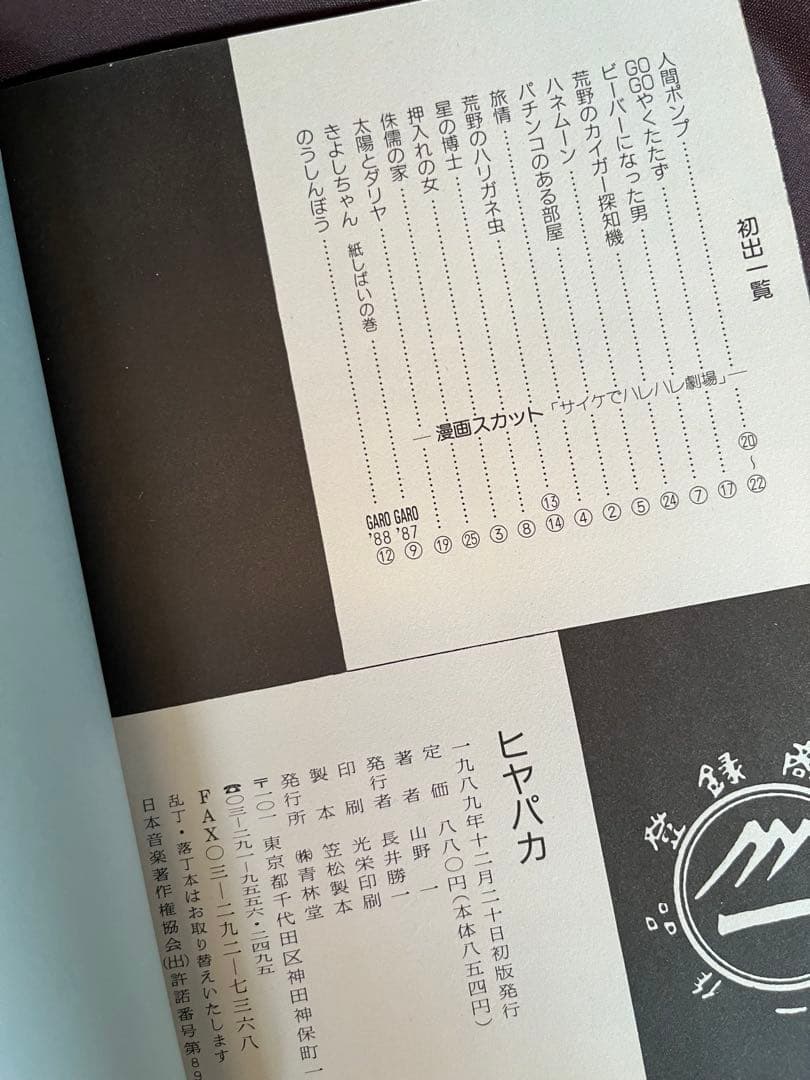 初出一覧
人間ポンプ……⑳〜㉒
GOGOやくたたず……⑰
ビーバーになった男……⑦
荒野のカイガー探知機……㉔
ハネムーン……⑤
パチンコのある部屋……②
旅情……④
荒野のハリガネ虫……⑬⑭
星の博士……⑧
押入れの女……③
侏儒の家……㉕
太陽とダリヤ……⑲
きよしちゃん 紙しばいの巻……GARO '87⑨
のうしんぼう……GARO '88⑫
―漫画スカット「サイケでハレハレ劇場」―
ヒヤパカ
一九八九年十二月二十日初版発行
定価 八八〇円(本体八五四円)
著者 山野一
発行者 長井勝一
印刷 光栄印刷
製本 笠松製本
発行所 ㈱青林堂
〒一〇一 東京都千代田区神田神保町一
☎〇三―二九一―九五五六・二四九五
FAX〇三―二九二―七三六八
乱丁・落丁本はお取り替えいたします
日本音楽著作権協会(出)許諾番号第89
登録
品
作
一